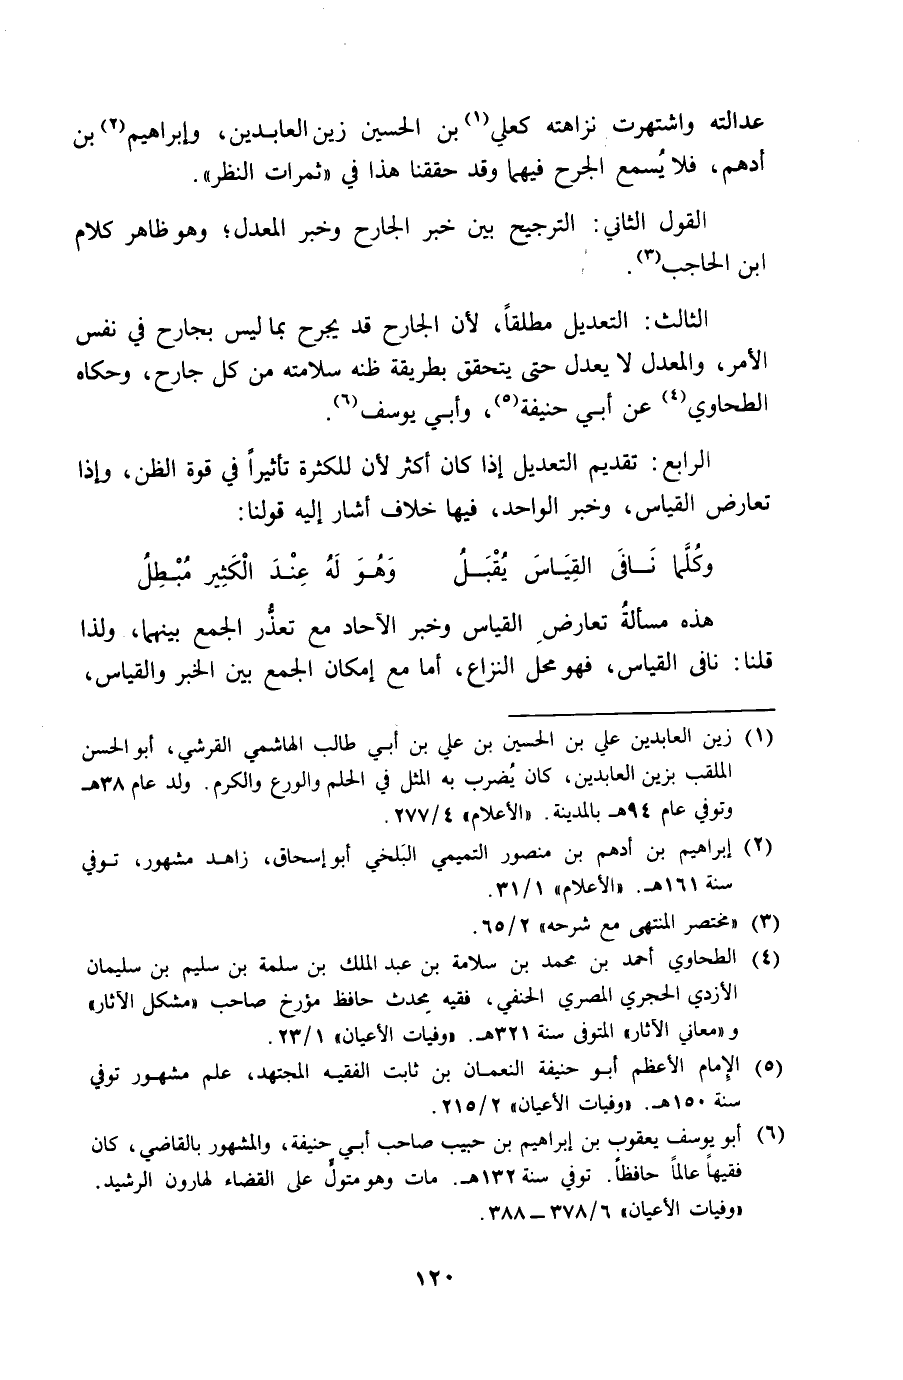 عدالته واشتهرت نزاهته كعلي(١) بن الحسين زين العابدين، وإبراهيم(٢) بن
أدهم، فلا يُسمع الجرح فيهما وقد حققنا هذا في «ثمرات النظر».
القول الثاني: الترجيح بين خبر الجارح وخبر المعدل؛ وهو ظاهر كلام
ابن الحاجب(٣).
الثالث: التعديل مطلقاً، لأن الجارح قد يجرح بما ليس بجارح في نفس
الأمر، والمعدل لا يعدل حتى يتحقق بطريقة ظنه سلامته من كل جارح، وحكاه
الطحاوي(٤) عن أبي حنيفة(٥)، وأبي يوسف(٦).
الرابع: تقديم التعديل إذا كان أكثر لأن للكثرة تأثيراً في قوة الظن، وإذا
تعارض القياس، وخبر الواحد، فيها خلاف أشار إليه قولنا:
وكُلَّما نَافَى القِيَاسَ يُقْبَلُ وَهُوَ لَهُ عِنْدَ الْكَثِيرِ مُبْطِلُ
هذه مسألةُ تعارضِ القياس وخبر الآحاد مع تعذُّر الجمع بينهما، ولذا
قلنا: نافى القياس، فهو محل النزاع، أما مع إمكان الجمع بين الخبر والقياس،
(١) زين العابدين علي بن الحسين بن علي بن أبي طالب الهاشمي القرشي، أبو الحسن
الملقب بزين العابدين، كان يُضرب به المثل في الحلم والورع والكرم. ولد عام ٣٨هـ
وتوفي عام ٩٤هـ بالمدينة. «الأعلام» ٢٧٧/٤.
(٢) إبراهيم بن أدهم بن منصور التميمي البَلخي أبو إسحاق، زاهد مشهور، توفي
سنة ١٦١هـ. «الأعلام» ٣١/١.
(٣) «مختصر المنتهى مع شرحه» ٦٥/٢.
(٤) الطحاوي أحمد بن محمد بن سلامة بن عبد الملك بن سلمة بن سليم بن سليمان
الأزدي الحجري المصري الحنفي، فقيه محدث حافظ مؤرخ صاحب «مشكل الآثار»
و «معاني الآثار» المتوفى سنة ٣٢١هـ. «وفيات الأعيان» ٢٣/١.
(٥) الإمام الأعظم أبو حنيفة النعمان بن ثابت الفقيه المجتهد، علم مشهور توفي
سنة ١٥٠هـ. «وفيات الأعيان» ٢١٥/٢.
(٦) أبو يوسف يعقوب بن إبراهيم بن حبيب صاحب أبي حنيفة، والمشهور بالقاضي، كان
فقيهاً عالماً حافظاً. توفي سنة ١٣٢هـ. مات وهو متولٍّ على القضاء لهارون الرشيد.
«وفيات الأعيان» ٣٧٨/٦ - ٣٨٨.
١٢٠